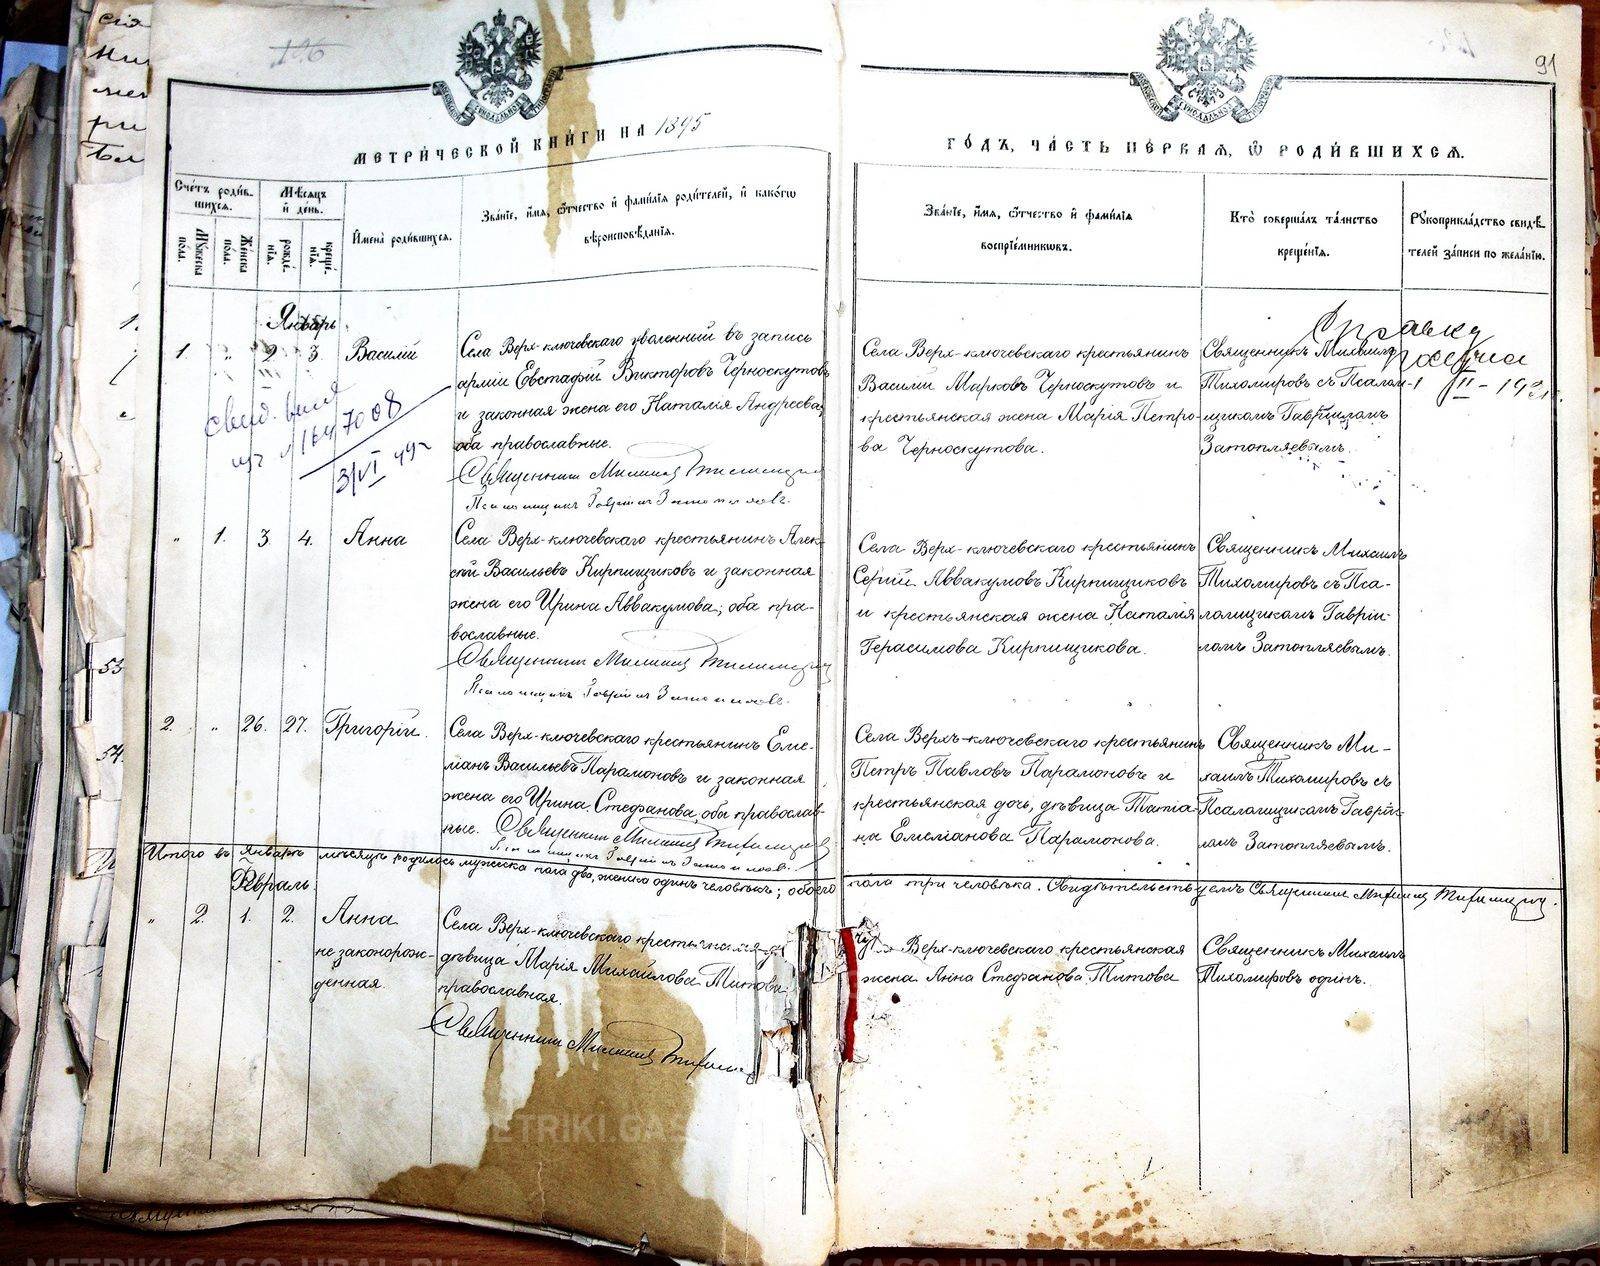 126
91
МЕТРИ́ЧЕСКОЙ КНИ́ГИ НА 1895
ГО́ДЪ, ЧА́СТЬ ПЕ́РВАЯ, Ѽ РОДИ́ВШИХСЯ.
Сче́тъ роди́в-
шихся.
Му́жеска
по́ла.
Же́нска
по́ла.
Мѣ́сяцъ
и́ де́нь.
рожде́-
нія.
креще́-
нія.
И́мена роди́вшихся.
Зва́ніе, и́мя, ѻ́тчество и́ фами́лія роди́телей, и́ како́гѡ
вѣроисповѣ́данія.
Зва́ніе, и́мя, ѻ́тчество и́ фами́лія
воспріе́мниковъ.
Кто̀ соверша́лъ та́инство
креще́нія.
Рукоприкла́дство свидѣ́-
телей за́писи по жела́нію.
Январь
1. " 2 3. Василій
Села Верх-ключевскаго уволенный въ запась
арміи Евстафій Викторовъ Черноскутовъ
и законная жена его Наталія Андреева,
оба православные.
Священник Михаил Тихомиров
Псаломщикъ Гавріил Затопляевъ.
Села Верх-ключевскаго крестьянинъ
Василій Марковъ Черноскутовъ и
крестьянская жена Марія Петро-
ва Черноскутова.
Священникъ Михаилъ
Тихомировъ съ Псалом-
щикомъ Гавріиломъ
Затопляевымъ.
Справку
1 II - 192
свид.
№ 7008
3/VI 49 г
" 1. 3. 4. Анна
Села Верх-ключевскаго крестьянинъ Алек-
сѣй Васильевъ Кирпищиковъ и законная
жена его Ирина Аввакумова, оба пра-
вославные.
Священник Михаил Тихомиров
Псаломщикъ Гавріил Затопляевъ.
Села Верх-ключевскаго крестьянинъ
Сергій Аввакумовъ Кирпищиковъ
и крестьянская жена Наталія
Герасимова Кирпищикова.
Священникъ Михаилъ
Тихомировъ съ Пса-
ломщикомъ Гавріи-
ломъ Затопляевымъ.
2. " 26. 27. Григорій.
Села Верх-ключевскаго крестьянинъ Еме-
ліанъ Васильевъ Парамоновъ и законная
жена его Ирина Стефанова, оба православ-
ные. Священник Михаил Тихомиров
Псаломщикъ Гавріил Затопляевъ.
Села Верхъ-ключевскаго крестьянинъ
Петръ Павловъ Парамоновъ и
крестьянская дочь, дѣвица Татіа-
на Емеліанова Парамонова.
Священникъ Ми-
хаилъ Тихомировъ съ
Псаломщикомъ Гавріи-
ломъ Затопляевымъ.
Итого въ Январѣ мѣсяцѣ родилось мужеска пола два, женска одинъ человѣкъ; обоего пола три человѣка. Свидѣтельствуемъ Священник Михаил Тихомиров.
Февраль
" 2. 1. 2. Анна
не законорож-
денная.
Села Верх-ключевскаго крестьянская
дѣвица Марія Михайлова Титова
православная.
Священник Михаил Тихомиров
Верх-ключевскаго крестьянская
жена Анна Стефанова Титова
Священникъ Михаилъ
Тихомировъ одинъ.
53
54.
METRIKI.GASO-URAL.RU